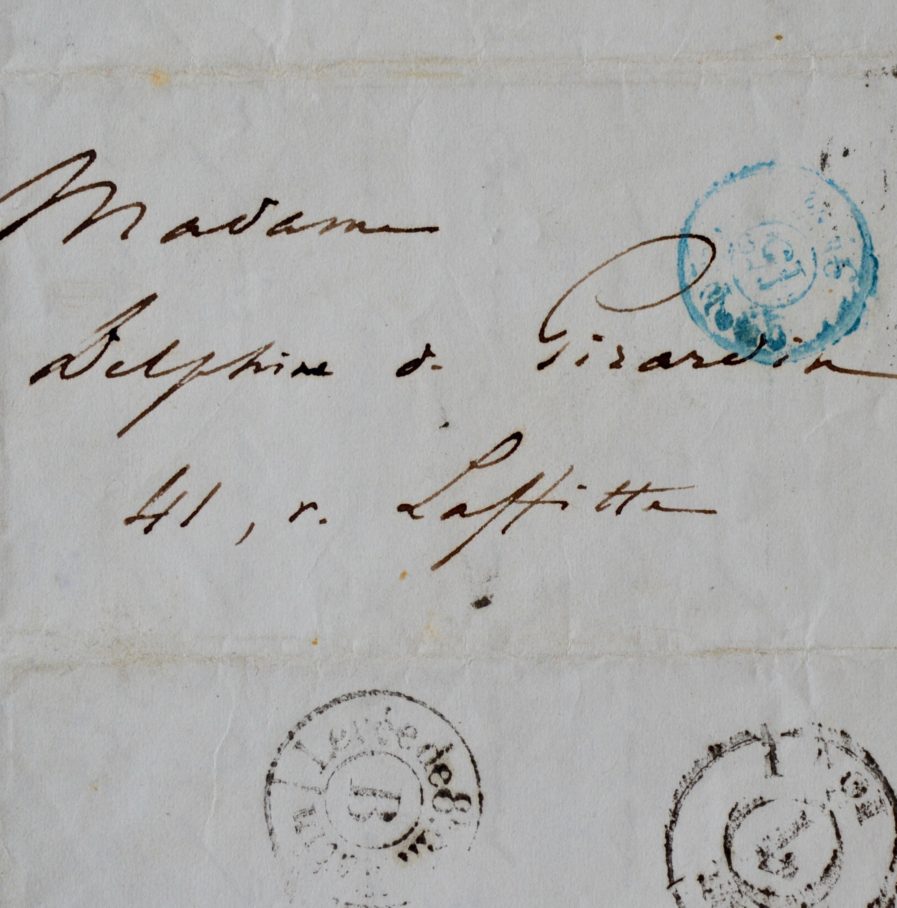 Madame
Delphine d. Girardin
41, r. Laffitte
Levée de 8
B